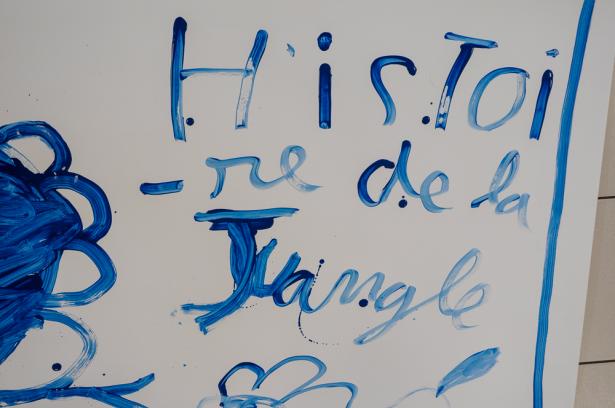 HisToi
-re de la
Jungle